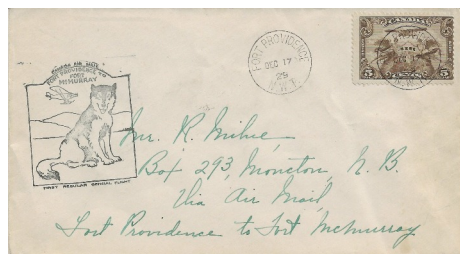 CANADIAN AIR MAIL
FORT PROVIDENCE TO
FORT
McMURRAY
FIRST REGULAR OFFICIAL FLIGHT
FORT PROVIDENCE
DEC 17
29
N.W.T.
CANADA
5 5
Mr. R. Milne,
Box 293, Moncton, N.B.
Via Air Mail,
Fort Providence to Fort McMurray